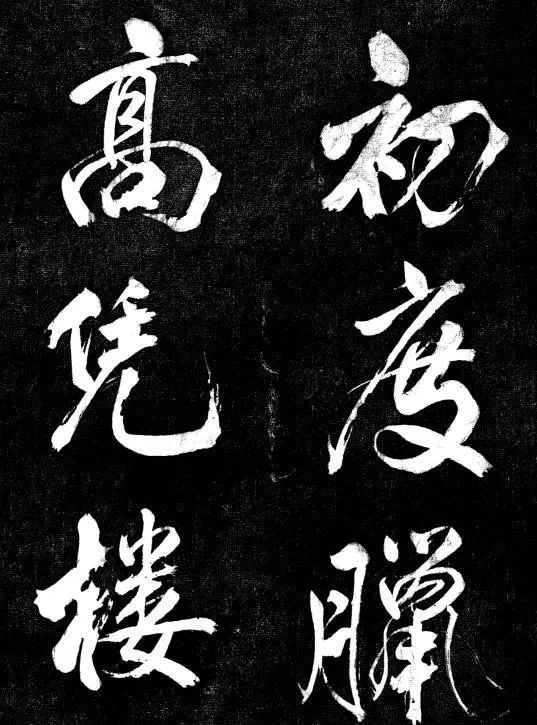 初度臘
高凭楼